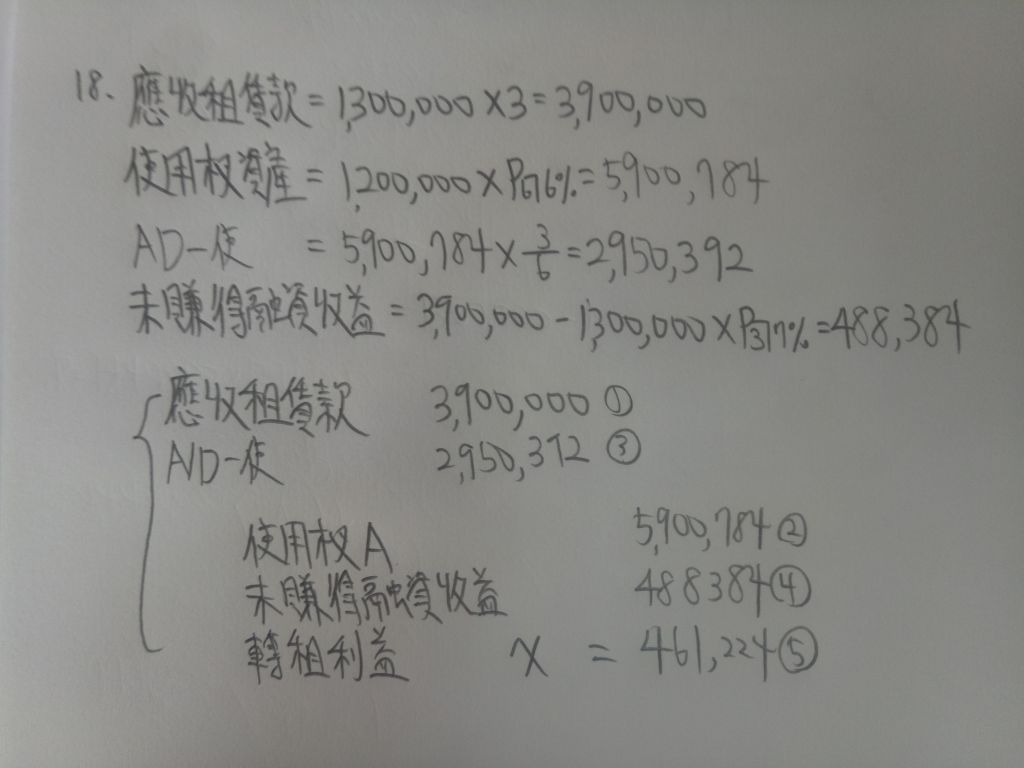 18. 應收租賃款 = 1,300,000 × 3 = 3,900,000
使用权資產 = 1,200,000 × P6┐6% = 5,900,784
AD-使 = 5,900,784 × 3/6 = 2,950,392
未賺得融資收益 = 3,900,000 - 1,300,000 × P3┐7% = 488,384
應收租賃款 3,900,000 ①
AD-使 2,950,392 ③
使用权A 5,900,784 ②
未賺得融資收益 488384 ④
轉租利益 x = 461,224 ⑤